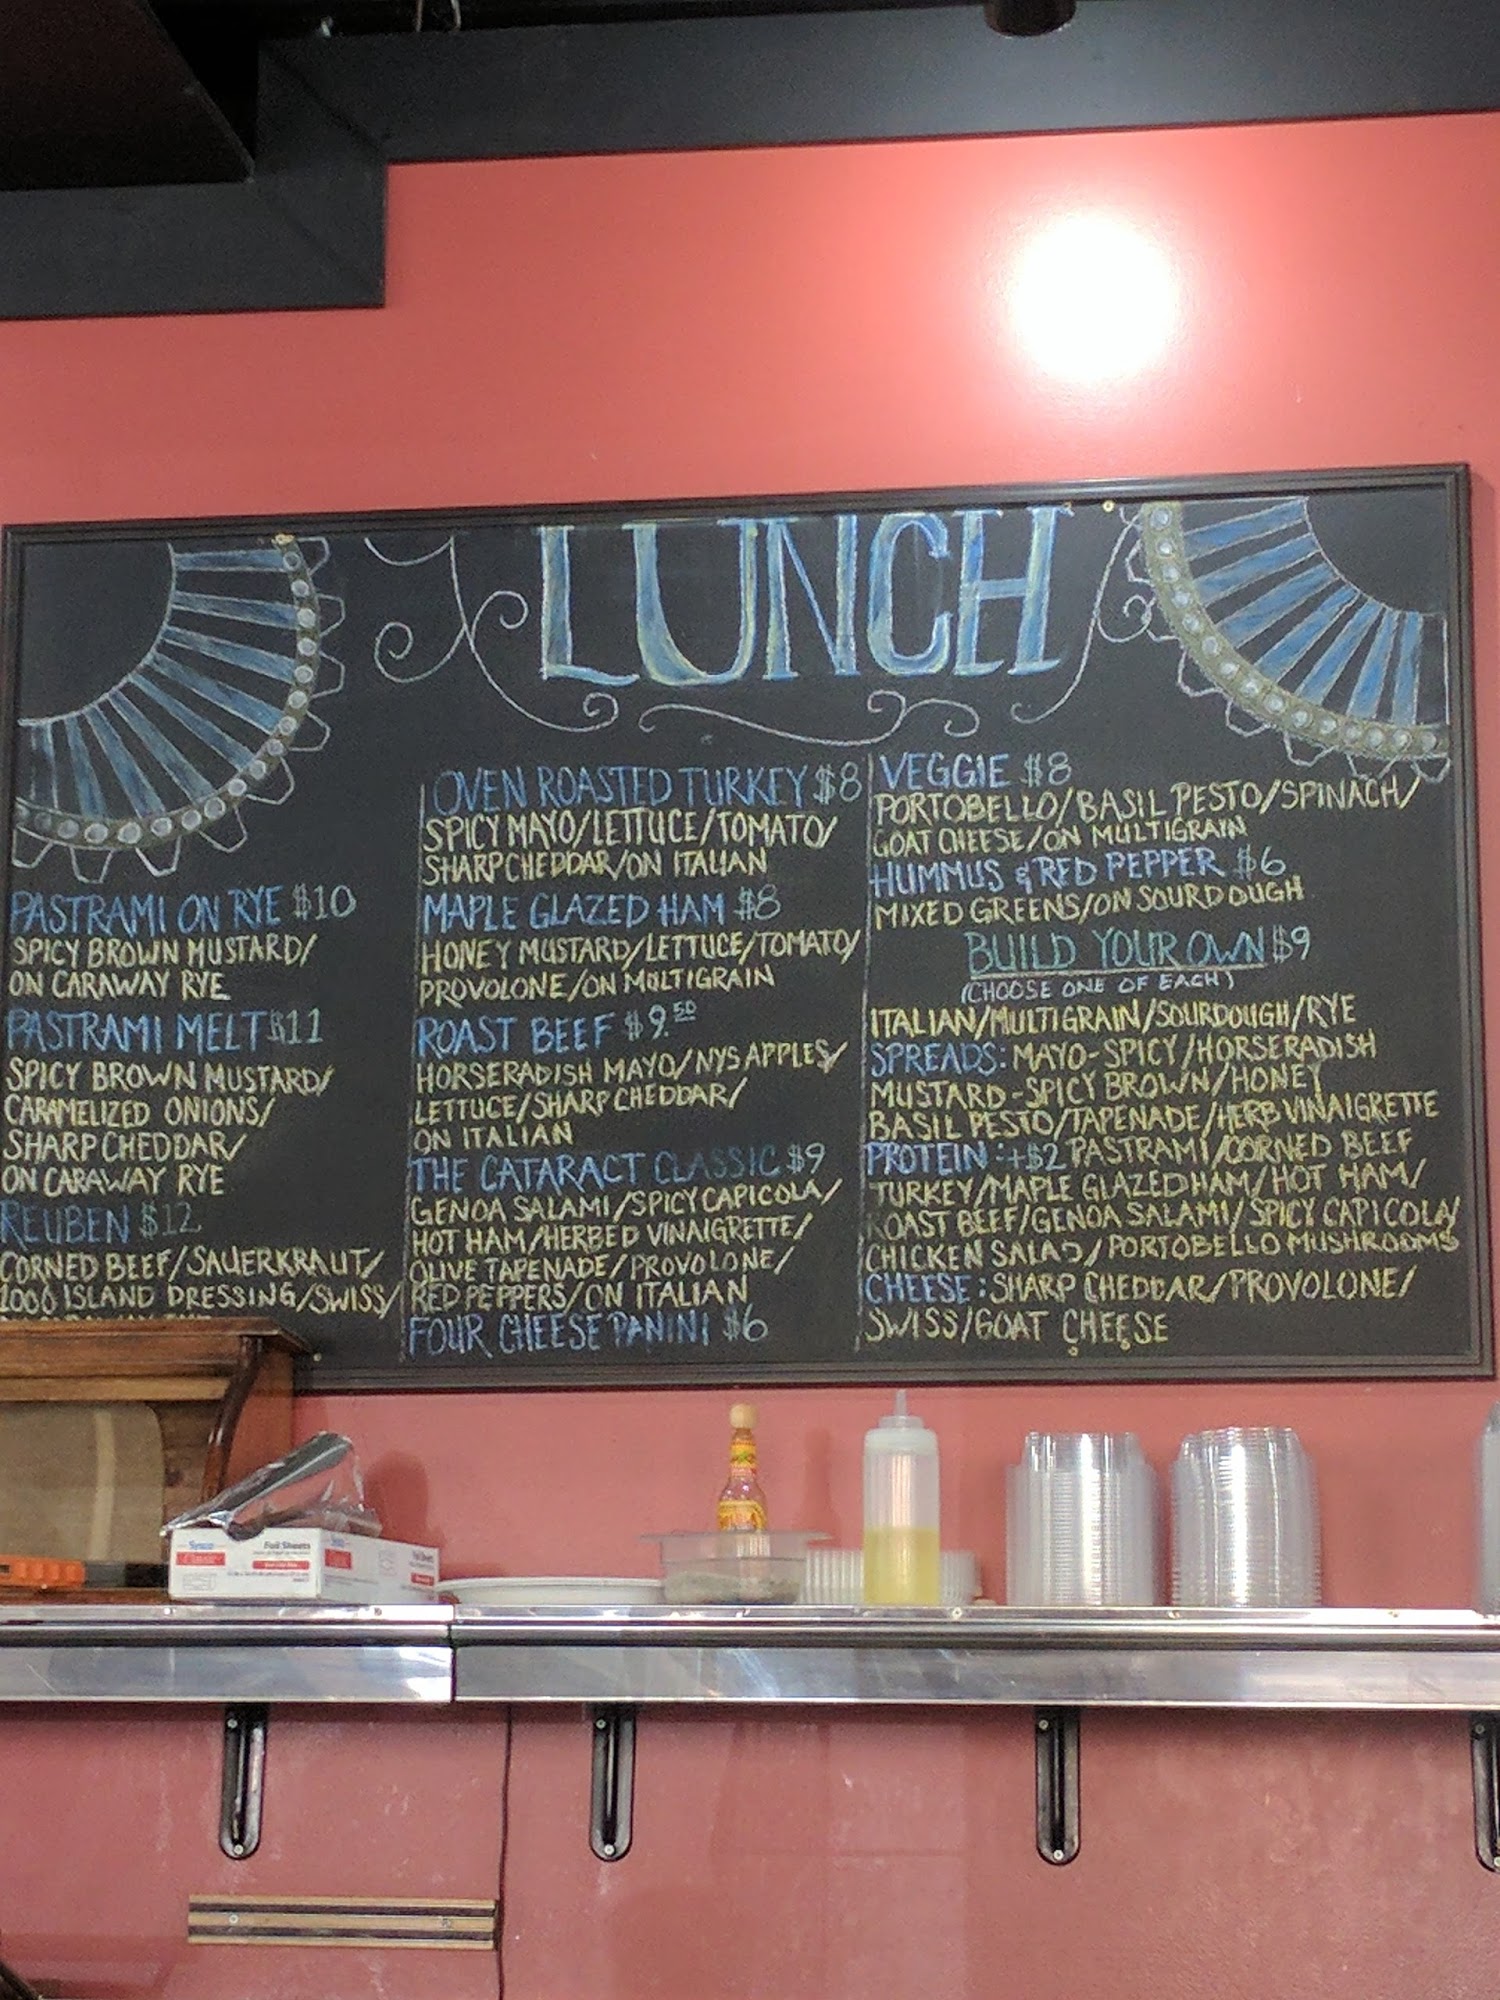 LUNCH
PASTRAMI ON RYE $10
SPICY BROWN MUSTARD/
ON CARAWAY RYE
PASTRAMI MELT $11
SPICY BROWN MUSTARD/
CARAMELIZED ONIONS/
SHARP CHEDDAR/
ON CARAWAY RYE
REUBEN $12
CORNED BEEF/SAUERKRAUT/
1000 ISLAND DRESSING/SWISS/
OVEN ROASTED TURKEY $8
SPICY MAYO/LETTUCE/TOMATO/
SHARP CHEDDAR/ON ITALIAN
MAPLE GLAZED HAM $8
HONEY MUSTARD/LETTUCE/TOMATO/
PROVOLONE/ON MULTIGRAIN
ROAST BEEF $9.50
HORSERADISH MAYO/NYS APPLES/
LETTUCE/SHARP CHEDDAR/
ON ITALIAN
THE CATARACT CLASSIC $9
GENOA SALAMI/SPICY CAPICOLA/
HOT HAM/HERBED VINAIGRETTE/
OLIVE TAPENADE/PROVOLONE/
RED PEPPERS/ON ITALIAN
FOUR CHEESE PANINI $6
VEGGIE $8
PORTOBELLO/BASIL PESTO/SPINACH/
GOAT CHEESE/ON MULTIGRAIN
HUMMUS & RED PEPPER $6
MIXED GREENS/ON SOURDOUGH
BUILD YOUR OWN $9
(CHOOSE ONE OF EACH)
ITALIAN/MULTIGRAIN/SOURDOUGH/RYE
SPREADS: MAYO-SPICY/HORSERADISH
MUSTARD-SPICY BROWN/HONEY
BASIL PESTO/TAPENADE/HERB VINAIGRETTE
PROTEIN: +$2 PASTRAMI/CORNED BEEF
TURKEY/MAPLE GLAZED HAM/HOT HAM/
ROAST BEEF/GENOA SALAMI/SPICY CAPICOLA/
CHICKEN SALAD/PORTOBELLO MUSHROOMS
CHEESE: SHARP CHEDDAR/PROVOLONE/
SWISS/GOAT CHEESE
Sysco
Classic
Foil Sheets